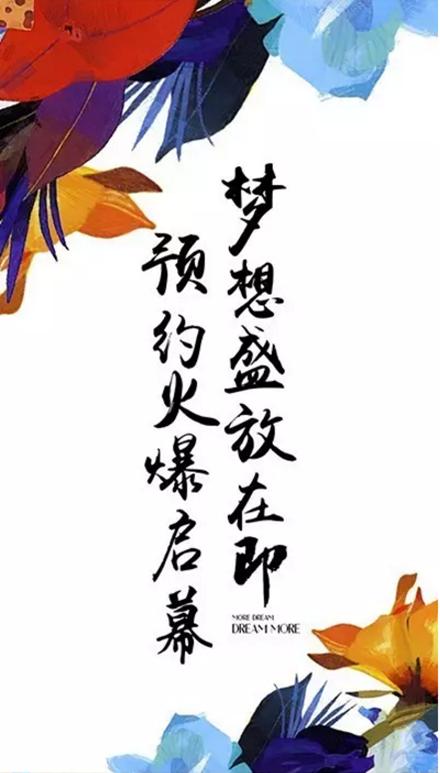 梦想盛放在即
预约火爆启幕
MORE DREAM
DREAM MORE